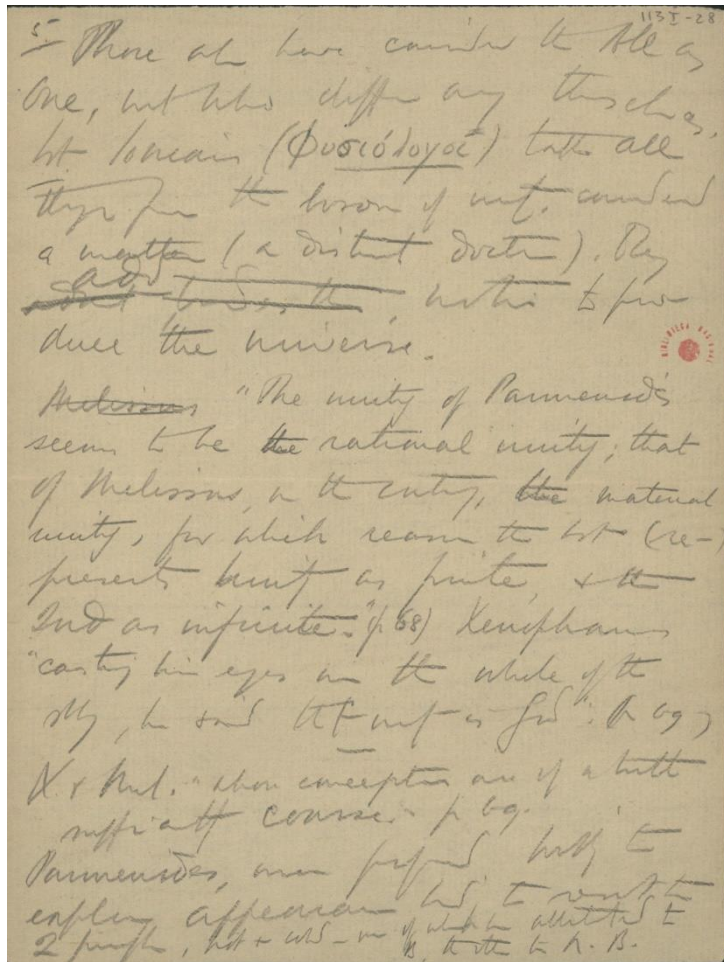 5.
113 I - 28
Those who have considered the All as
One, but who differ among themselves.
1st Ionians (Φυσιόλογοι) take all
things from the bosom of unity, considered
as matter (a distinct doctrine). They
add
motion to pro-
duce the universe.
Melissus "The unity of Parmenides
seems to be the rational unity; that
of Melissus, on the contrary, the material
unity, for which reason the 1st (re-)
presents unity as finite, & the
2nd as infinite." (p 68) Xenophanes
"casting his eyes on the whole of the
sky, he said that unity is God". p 69
X & Mel. "whose conceptions are of a little
coarse" p 69.
Parmenides, more profound, having to
explain appearances had to
2 principles, hot & cold – one of which he attributed to
B, the other to N. B.
BIBLIOTECA NACIONAL